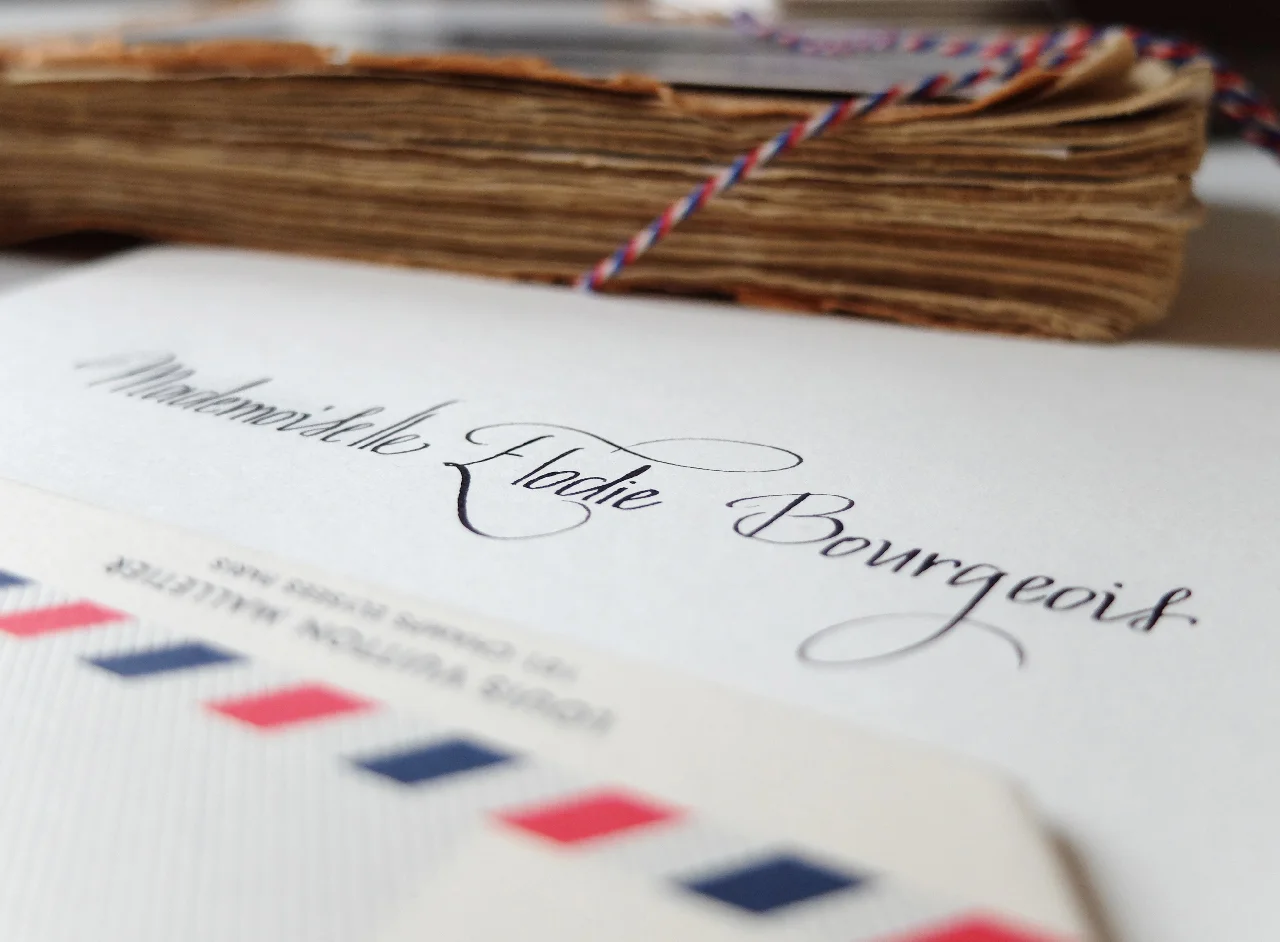 Mademoiselle Elodie Bourgeois
LOUIS VUITTON MALLETIER
101 CHAMPS ELYSEES PARIS